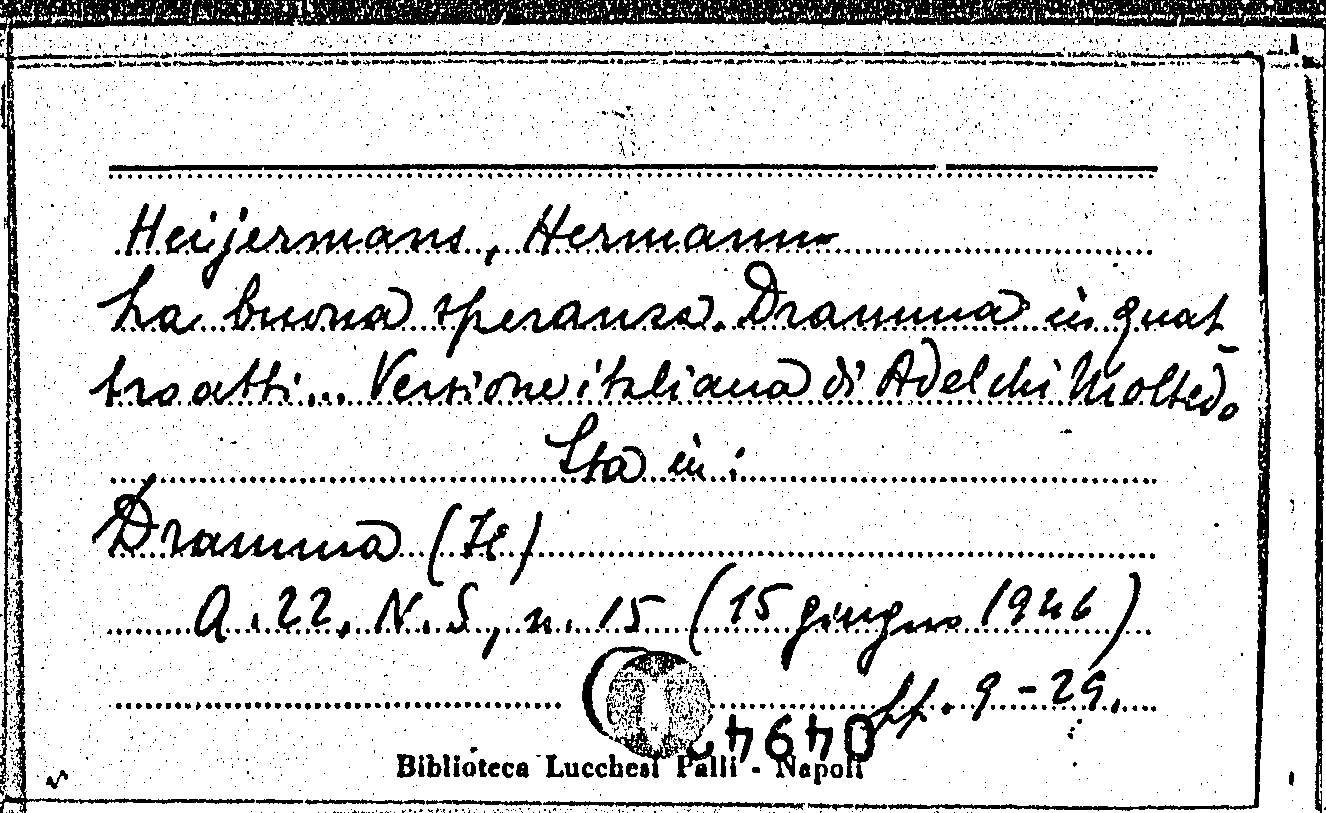 Heijermans, Hermann
La buona speranza. Dramma in quat-
tro atti... Versione italiana di Adelchi Moltedo
Sta in:
Dramma (Il)
A. 22, N.S, n. 15 (15 giugno 1946)
ff. 9-29.
Biblioteca Lucchesi Palli - Napoli